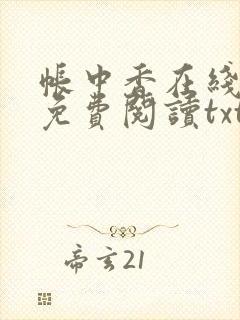 帳中香在綫
免費閱讀txt
帝玄21